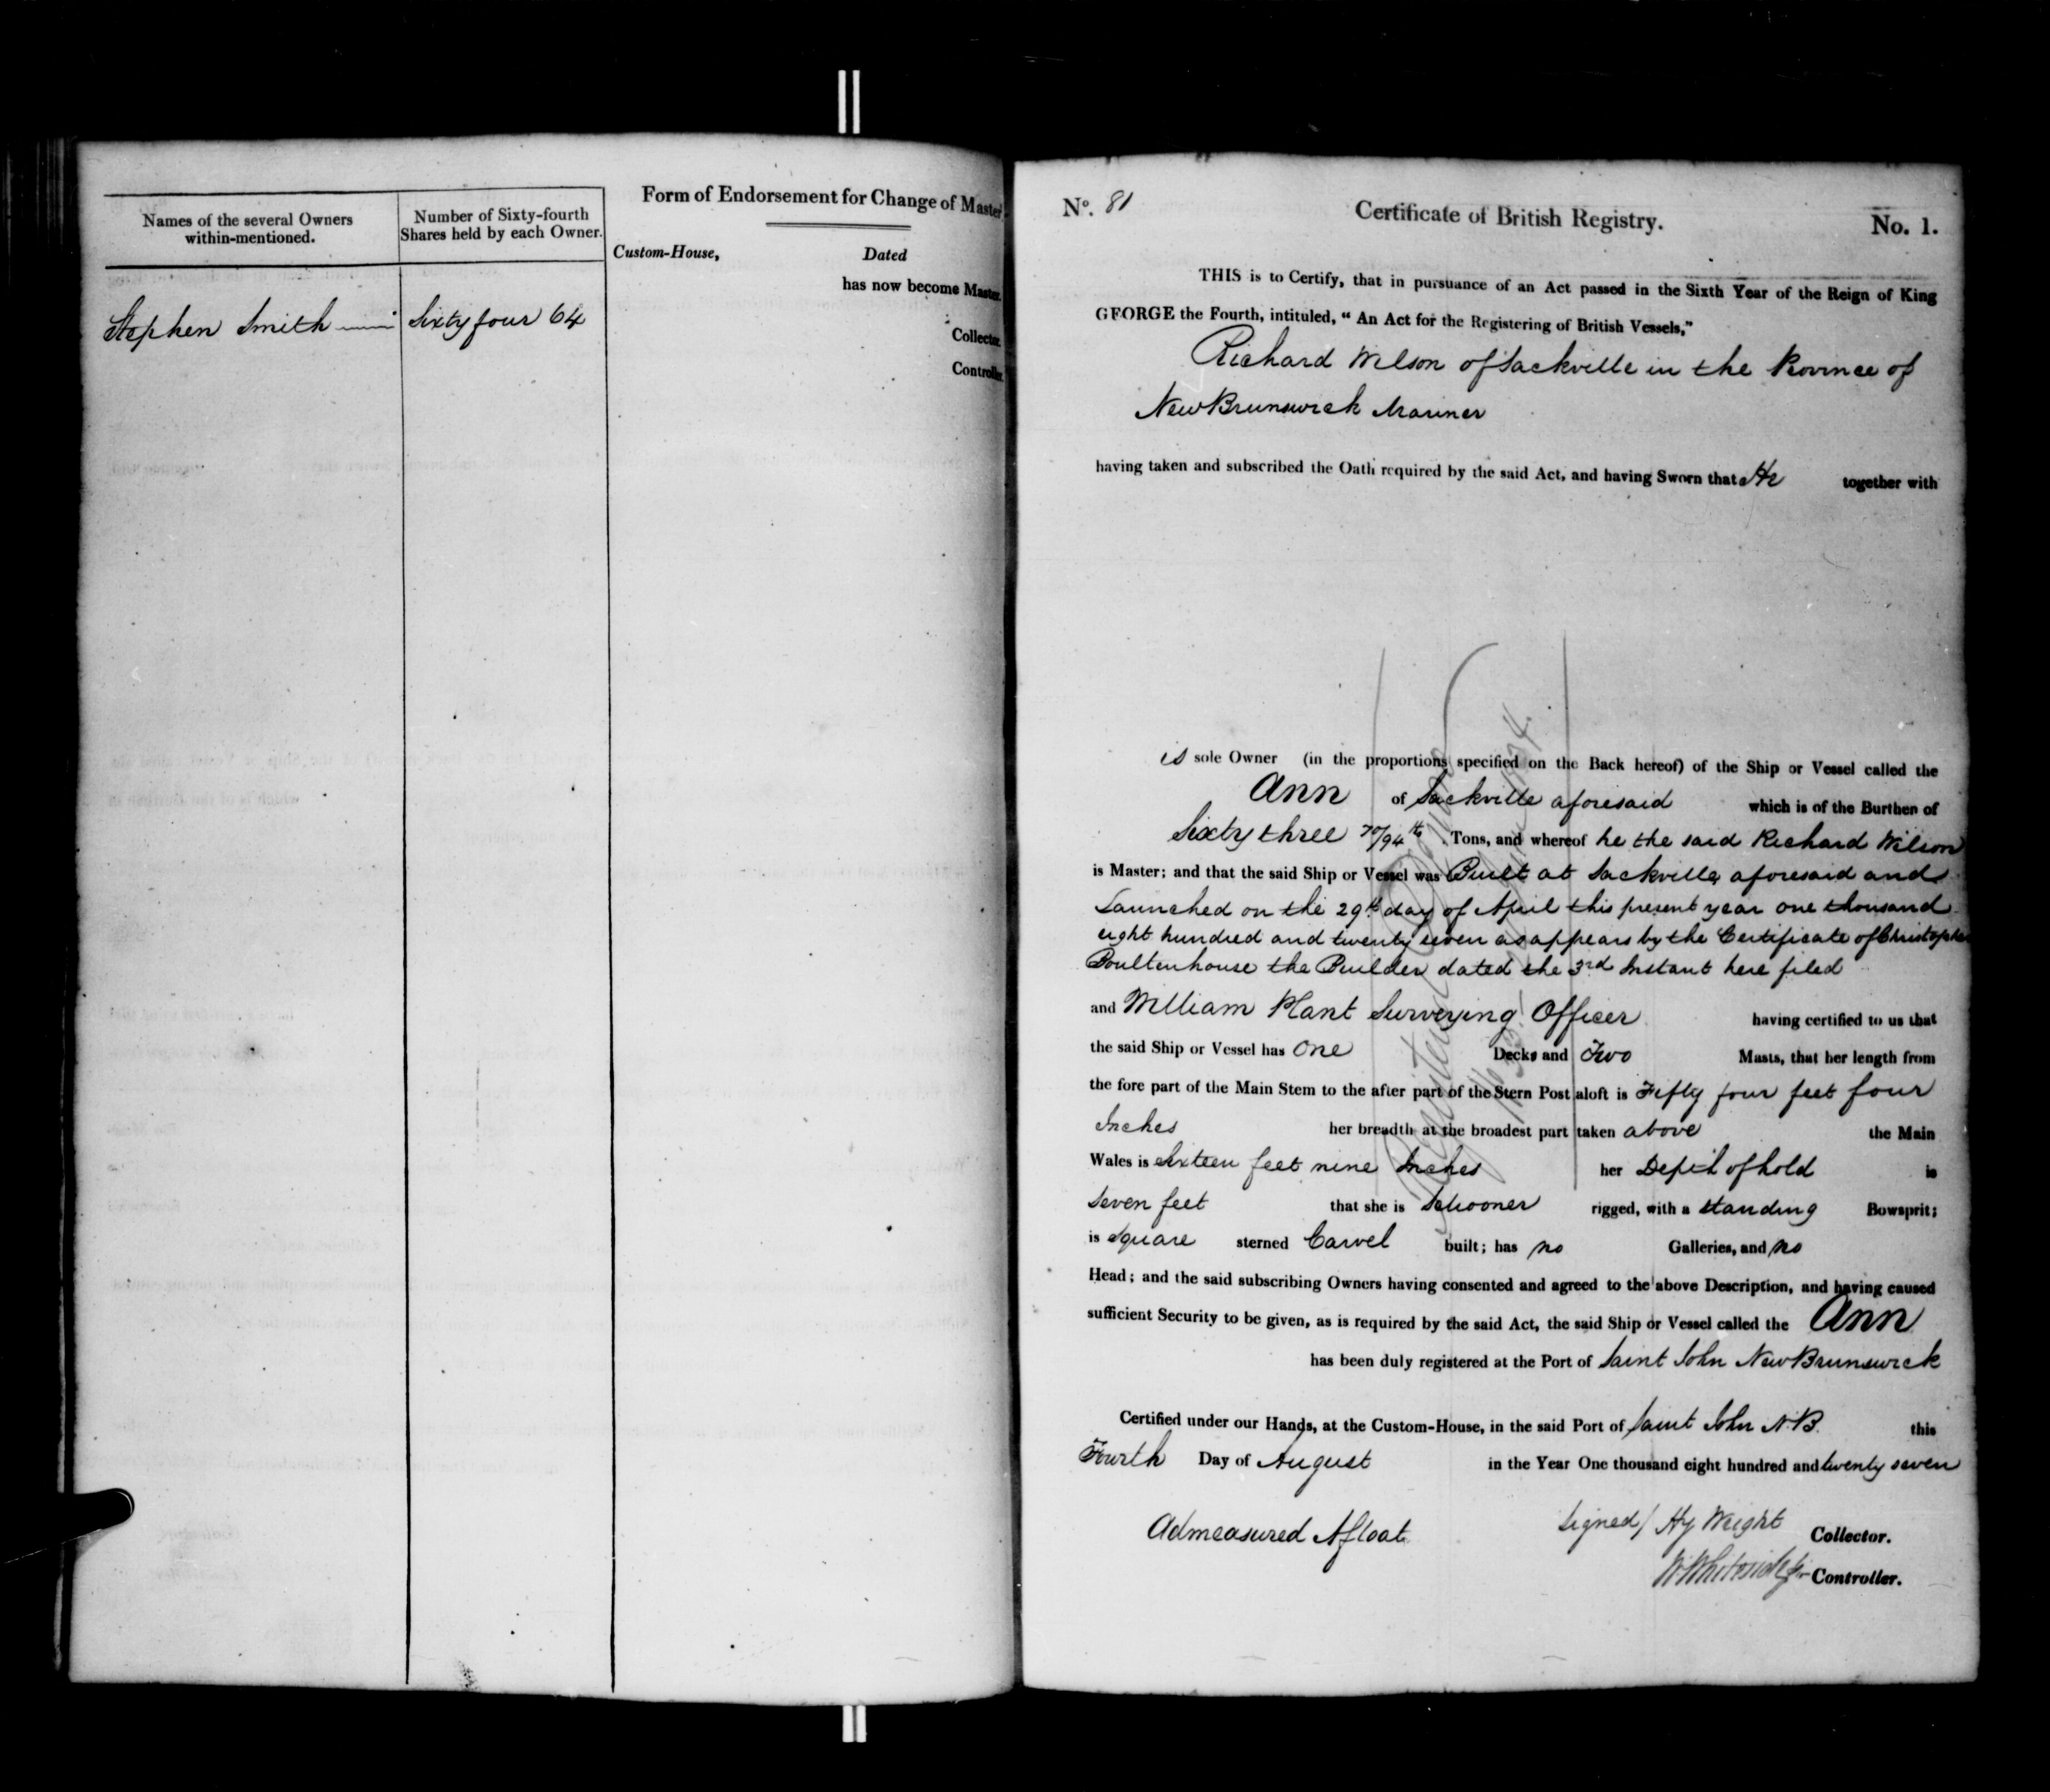 Names of the several Owners within-mentioned.
Number of Sixty-fourth Shares held by each Owner.
Stephen Smith
Sixty four 64
Form of Endorsement for Change of Master
Custom-House, Dated
has now become Master.
Collector.
Controller.
No. 81
Certificate of British Registry.
No. 1.
THIS is to Certify, that in pursuance of an Act passed in the Sixth Year of the Reign of King
GEORGE the Fourth, intituled, “ An Act for the Registering of British Vessels,”
Richard Wilson of Sackville in the Province of
New Brunswick Mariner
having taken and subscribed the Oath required by the said Act, and having Sworn that He together with
is sole Owner (in the proportions specified on the Back hereof) of the Ship or Vessel called the
Ann of Sackville aforesaid which is of the Burthen of
Sixty three 70/94th Tons, and whereof he the said Richard Wilson
is Master; and that the said Ship or Vessel was Built at Sackville aforesaid and
Launched on the 29th day of April this present year one thousand
eight hundred and twenty seven as appears by the Certificate of Christopher
Boultenhouse the Builder dated the 3rd Instant here filed
and William Plant Surveying Officer having certified to us that
the said Ship or Vessel has One Decks and Two Masts, that her length from
the fore part of the Main Stem to the after part of the Stern Post aloft is Fifty four feet four
Inches her breadth at the broadest part taken above the Main
Wales is Sixteen feet nine Inches her Depth of hold is
Seven feet that she is Schooner rigged, with a standing Bowsprit;
is Square sterned Carvel built; has no Galleries, and no
Head; and the said subscribing Owners having consented and agreed to the above Description, and having caused
sufficient Security to be given, as is required by the said Act, the said Ship or Vessel called the Ann
has been duly registered at the Port of Saint John New Brunswick
Certified under our Hands, at the Custom-House, in the said Port of Saint John N.B. this
Fourth Day of August in the Year One thousand eight hundred and twenty seven
Admeasured Afloat
Signed/ Hy Wright Collector.
W Whiteside Controller.